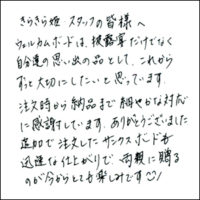 きらきら姫 スタッフの皆様へ
ウェルカムボードは、披露宴だけでなく
自分達の思い出の品として、これから
ずっと大切にしたいと思っています。
注文時から納品まで細やかな対応
に感謝しています。ありがとうございました
追加で注文したサンクスボードも
迅速な仕上がりで、両親に贈る
のが今からとても楽しみです♡!